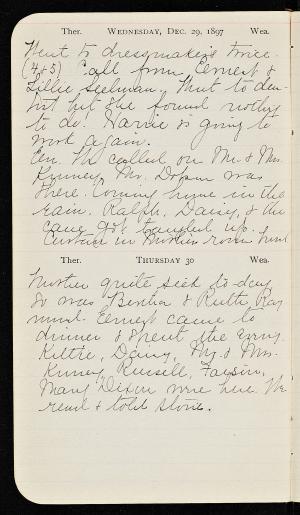 Ther. WEDNESDAY, DEC. 29, 1897 Wea.
Went to dressmaker's twice.
(4, 5) Call from Ernest &
Lillie Seelman. Went to den-
tist but she found nothing
to do! Harrie is going to
work again.
Ev. We called on Mr. & Mrs.
Kinney. Mr. was
there. Coming home in the
rain, Ralph, Daisy, & the
cane got tangled up.
Curtain in Mother's room
Ther. THURSDAY 30 Wea.
Mother quite sick to-day
So was Bertha & Ruth Ray
mund. Ernest came to
dinner & spent the evng.
Kittie, Daisy, Mr. & Mrs.
Kinney, Russell,
Mary Dixon were here. We
read & told stories.